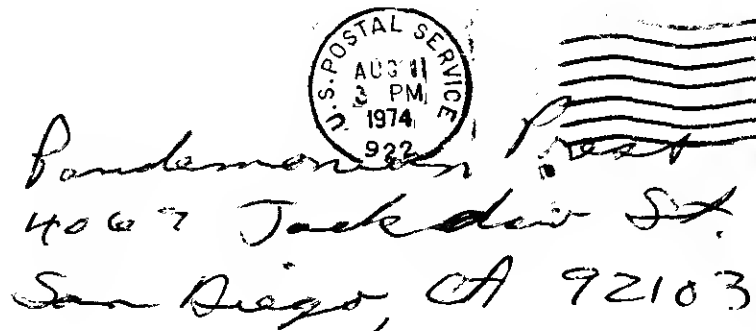 U.S. POSTAL SERVICE
AUG 11
3 PM
1974
922
Pandemonium Press
4067 Jackdaw St.
San Diego, CA 92103